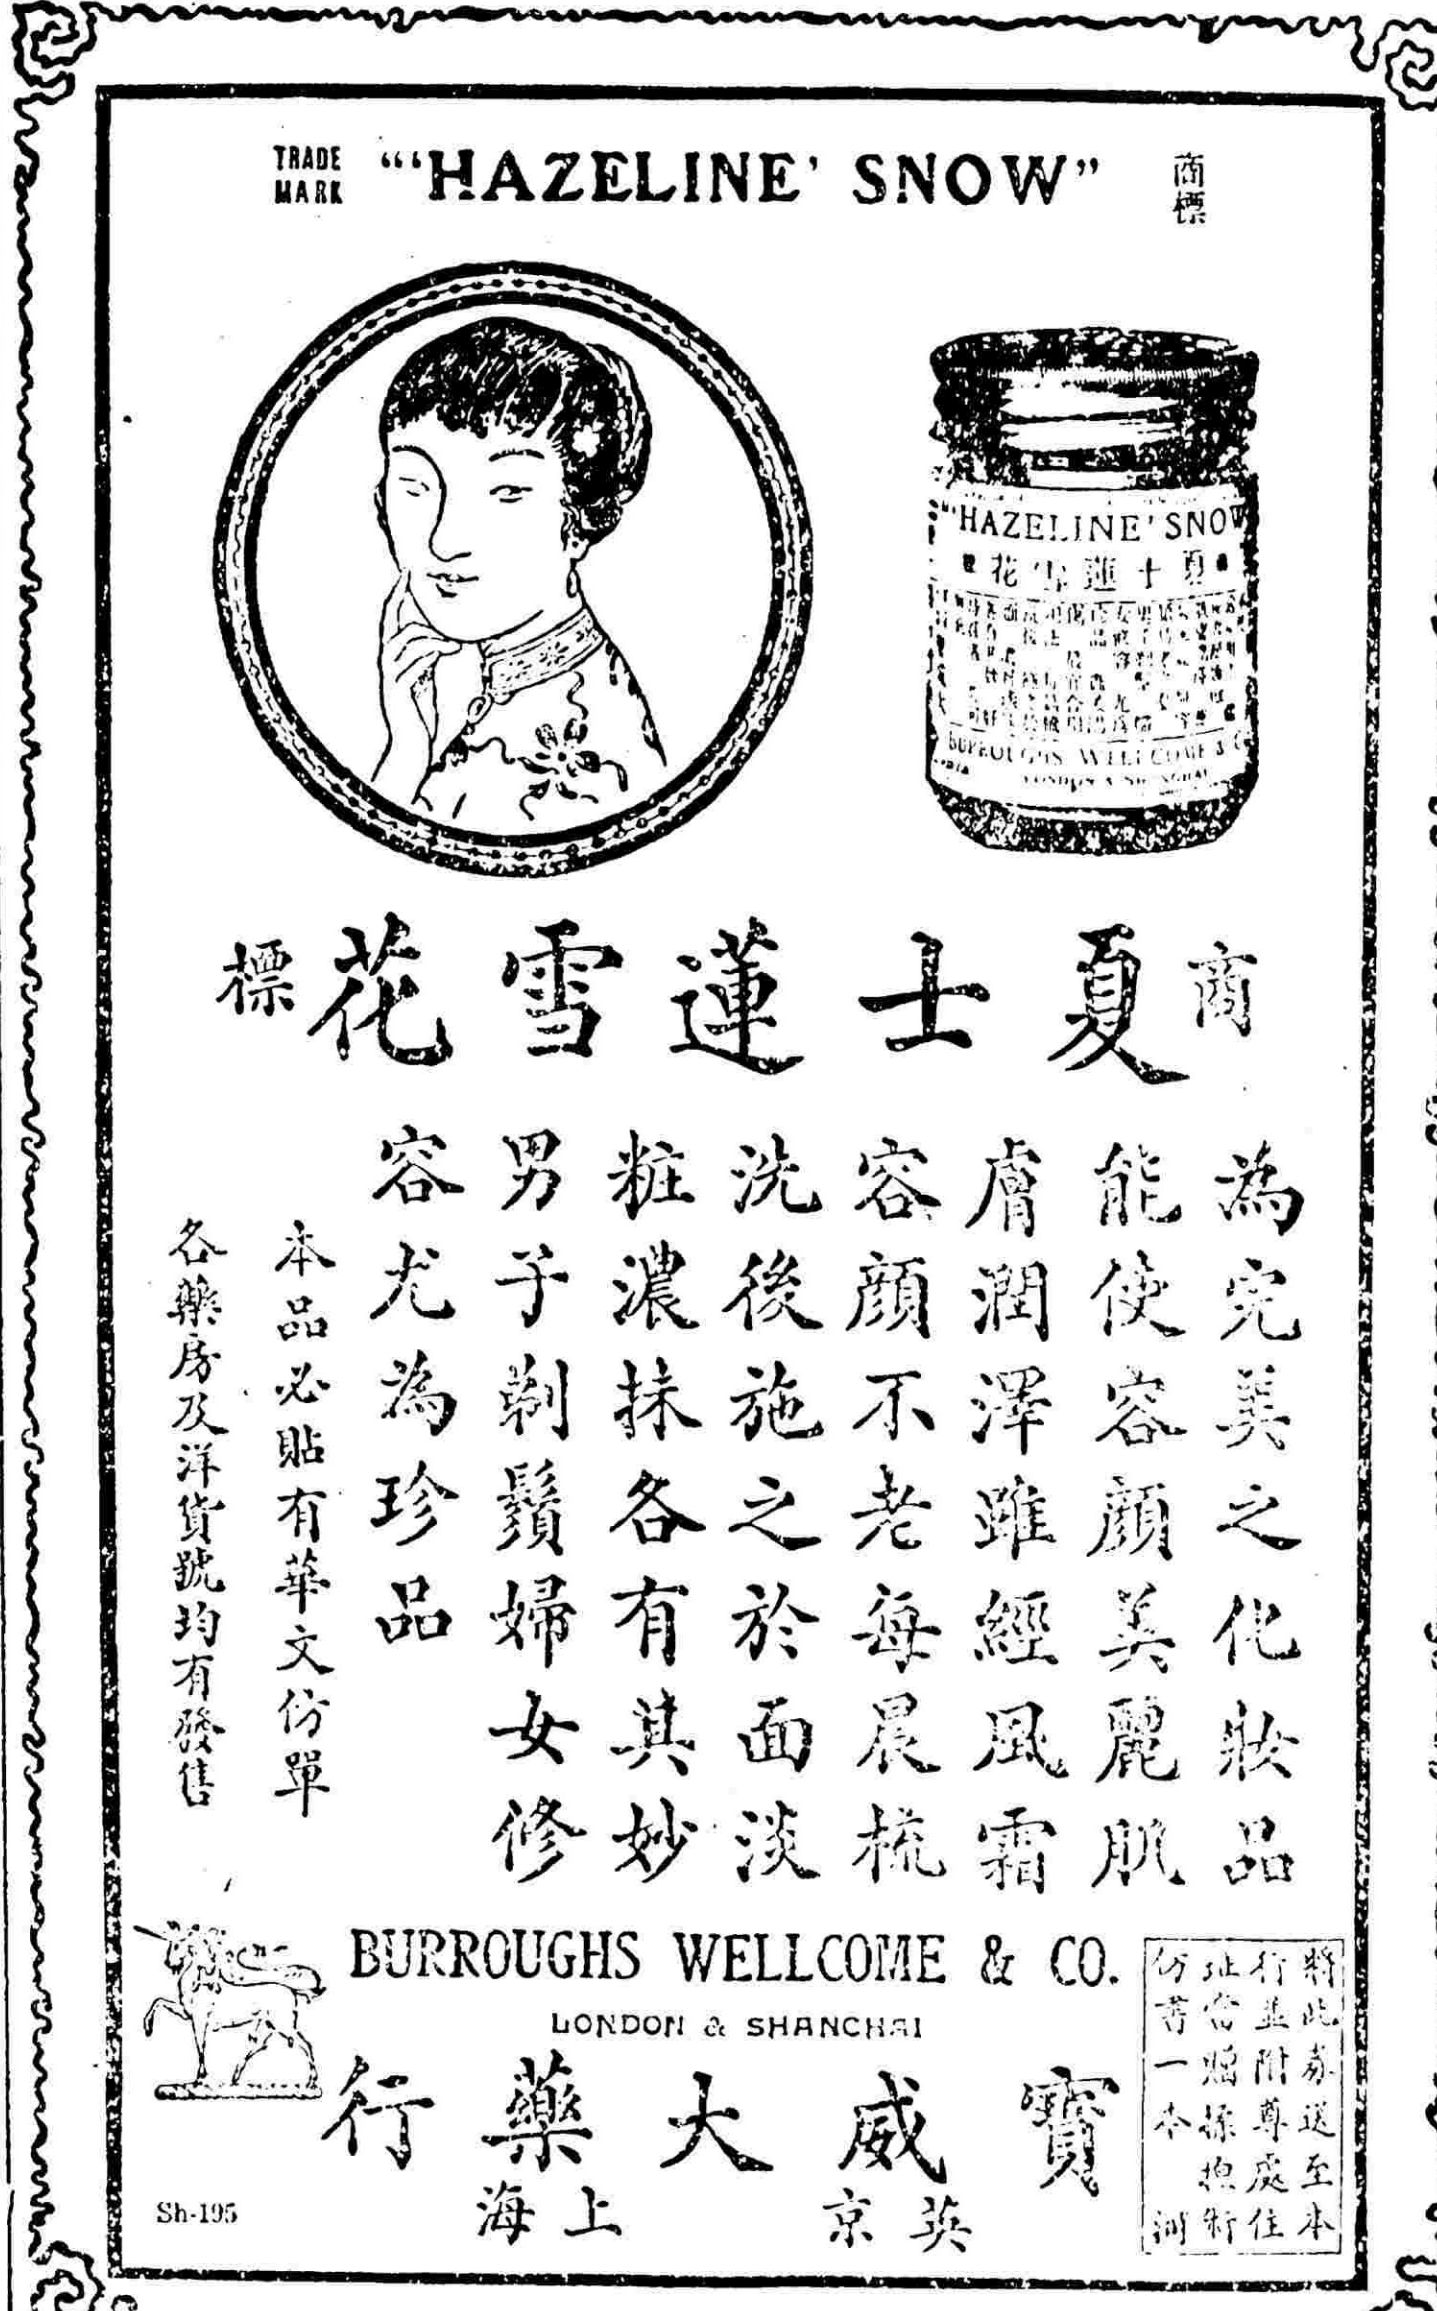 TRADE MARK "'HAZELINE' SNOW" 商標
"'HAZELINE' SNOW
夏士蓮雪花
BURROUGHS WELLCOME & C
LONDON & SHANGHAI
商夏士蓮雪花標
為完美之化妝品
能使容顏美麗肌
膚潤澤雖經風霜
容顏不老每晨梳
洗後施之於面淡
粧濃抹各有其妙
男子剃鬚婦女修
容尤為珍品
本品必貼有華文仿單
各藥房及洋貨號均有發售
BURROUGHS WELLCOME & CO.
LONDON & SHANGHAI
寶威大藥行
英京 上海
將此券送至本
行並附尊處住
址當贈
仿書一本
Sh-195